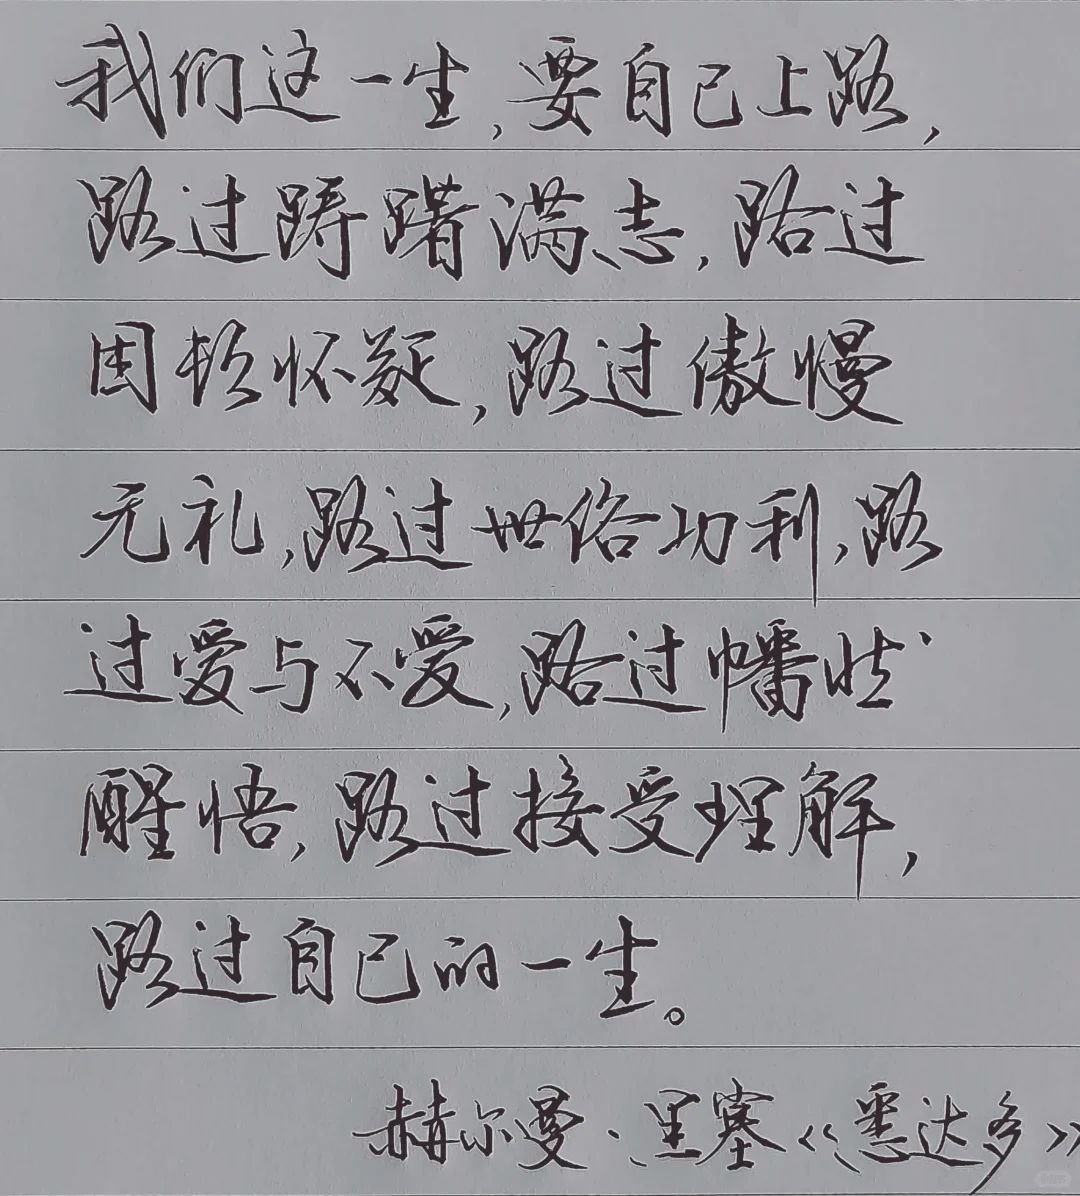 我们这一生，要自己上路，
路过踌躇满志，路过
困顿怀疑，路过傲慢
无礼，路过世俗功利，路
过爱与不爱，路过幡然
醒悟，路过接受理解，
路过自己的一生。
赫尔曼·黑塞《悉达多》